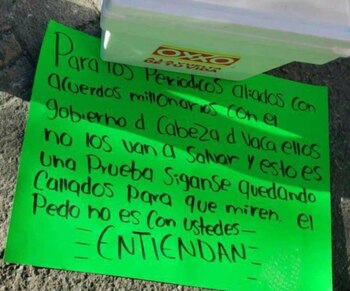 OXXO
Para los Periodicos aliados con
acuerdos millonarios con el
gobierno d Cabeza d Vaca ellos
no los van a Salvar y esto es
una Prueba Siganse quedando
Callados Para que miren el
Pedo no es Con ustedes—
ENTIENDAN